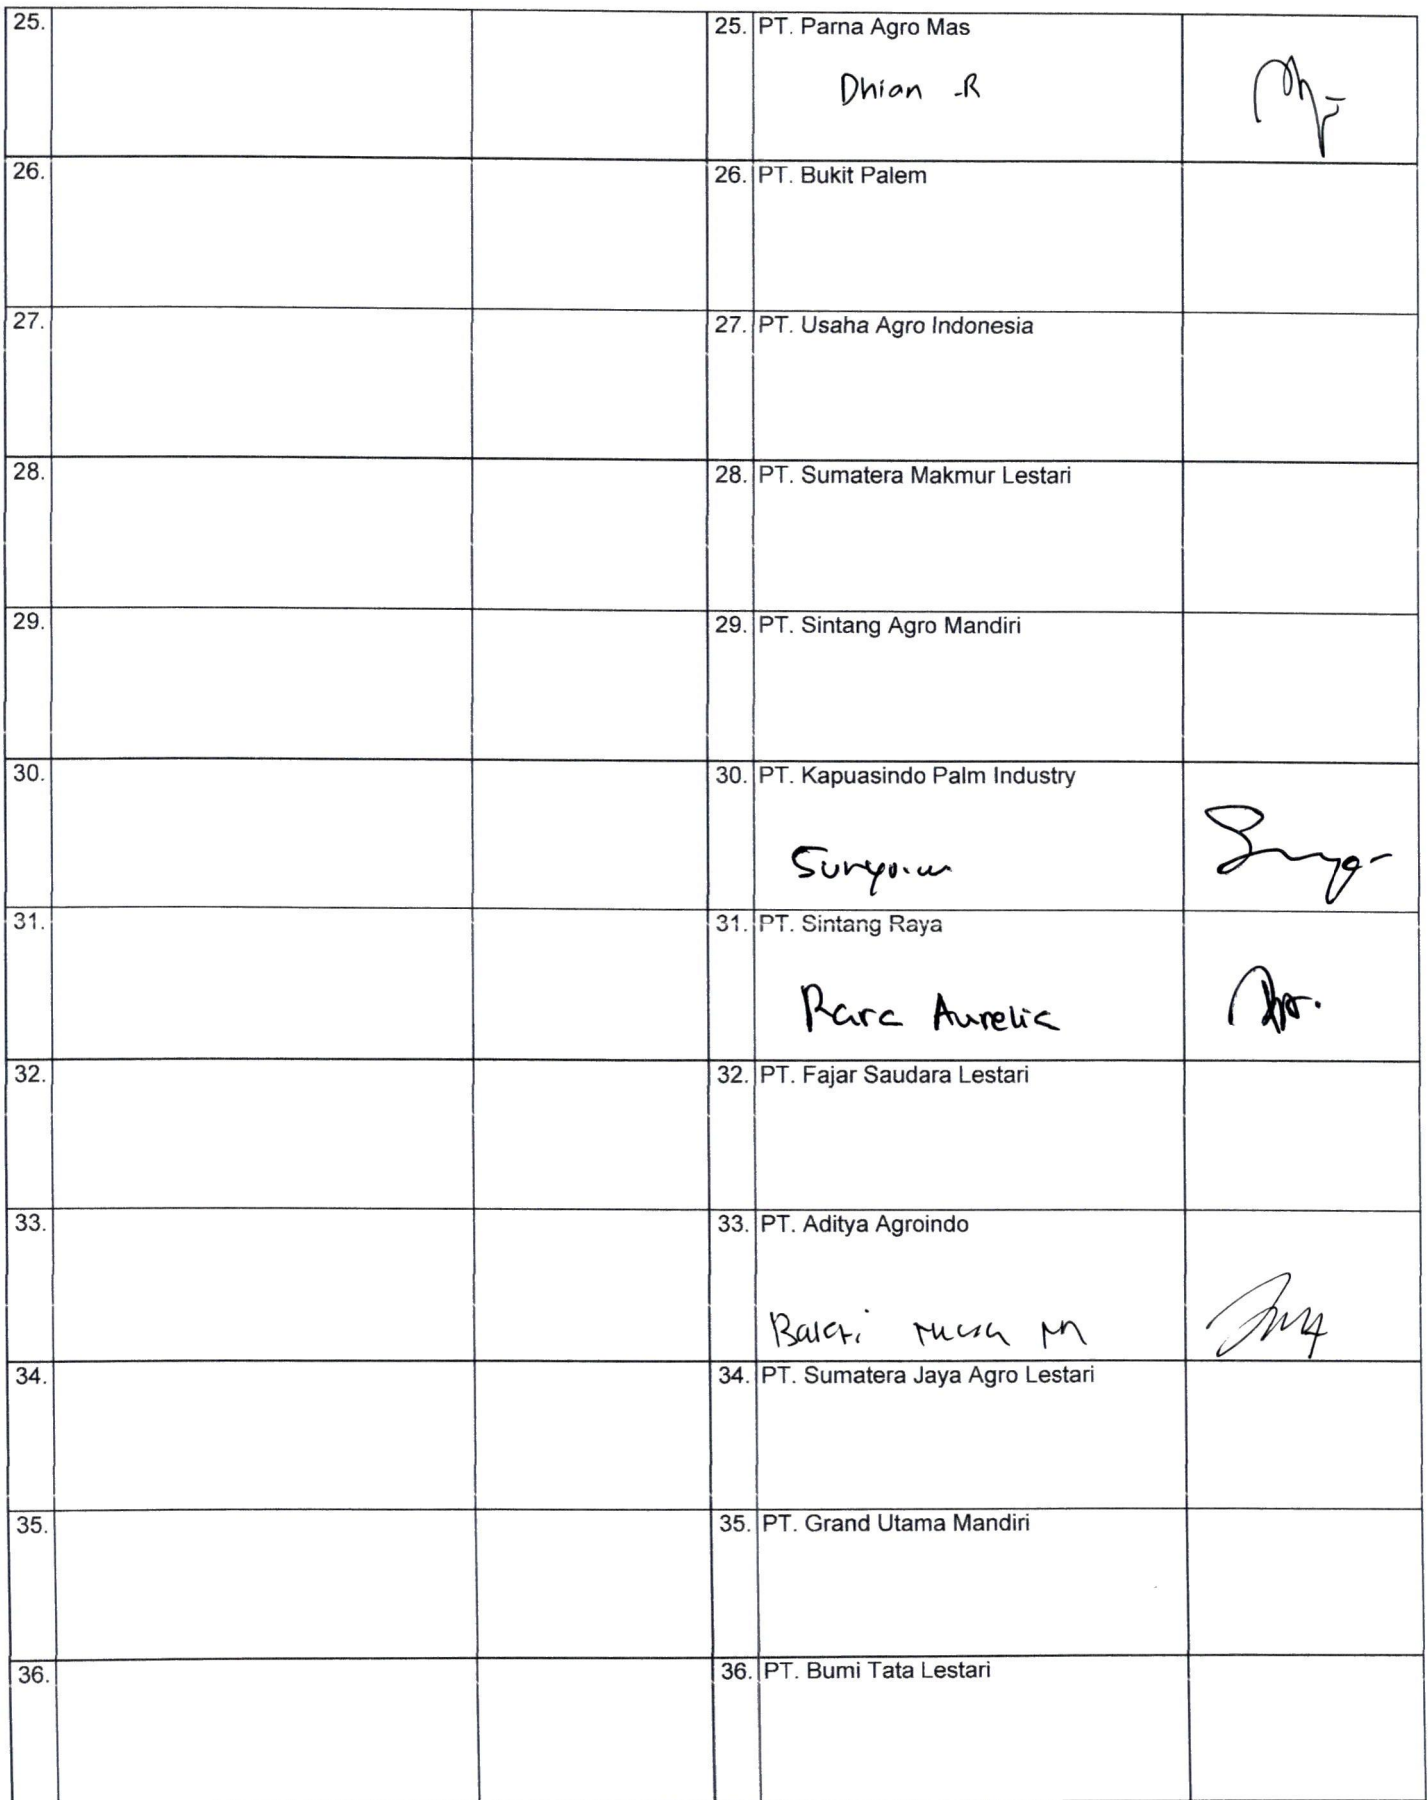 25. 25. PT. Parna Agro Mas
Dhian -R
26. 26. PT. Bukit Palem
27. 27. PT. Usaha Agro Indonesia
28. 28. PT. Sumatera Makmur Lestari
29. 29. PT. Sintang Agro Mandiri
30. 30. PT. Kapuasindo Palm Industry
31. 31. PT. Sintang Raya
Rara Aurelia
32. 32. PT. Fajar Saudara Lestari
33. 33. PT. Aditya Agroindo
Bakti
34. 34. PT. Sumatera Jaya Agro Lestari
35. 35. PT. Grand Utama Mandiri
36. 36. PT. Bumi Tata Lestari